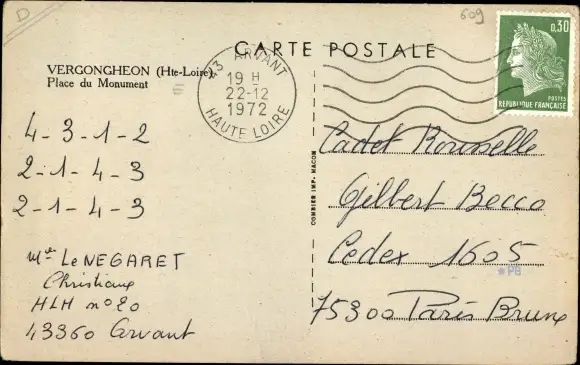 D
609
CARTE POSTALE
0,30
POSTES
REPUBLIQUE FRANÇAISE
VERGONGHEON (Hte-Loire)
Place du Monument
43 ARVANT
19 H
22-12
1972
HAUTE LOIRE
4-3-1-2
2-1-4-3
2-1-4-3
Mlle LE NEGARET
Christiane
HLM no 20
43360 Arvant
COMBIER IMP. MACON
Cadet Rousselle
Gilbert Becco
Cedex 1605
*PB
75300 Paris Brune